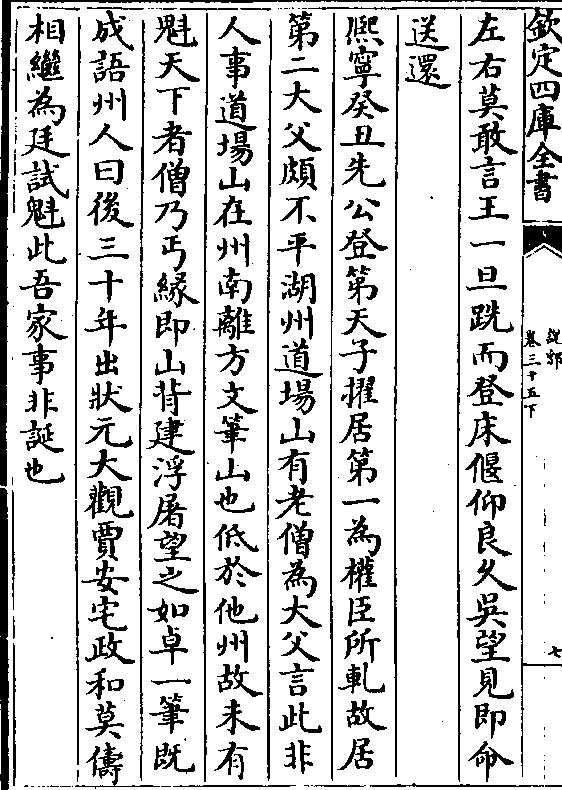 欽定四庫全書
說郛
卷三十五下
七
左右莫敢言王一旦跣而登床偃仰良久吳望見即命
送還
熈寧癸丑先公登第天子擢居第一為權臣所軋故居
第二大父頗不平湖州道場山有老僧為大父言此非
人事道場山在州南離方文筆山也低於他州故未有
魁天下者僧乃丐緣即山背建浮屠望之如卓一筆既
成語州人曰後三十年出狀元大觀賈安宅政和莫儔
相繼為廷試魁此吾家事非誕也